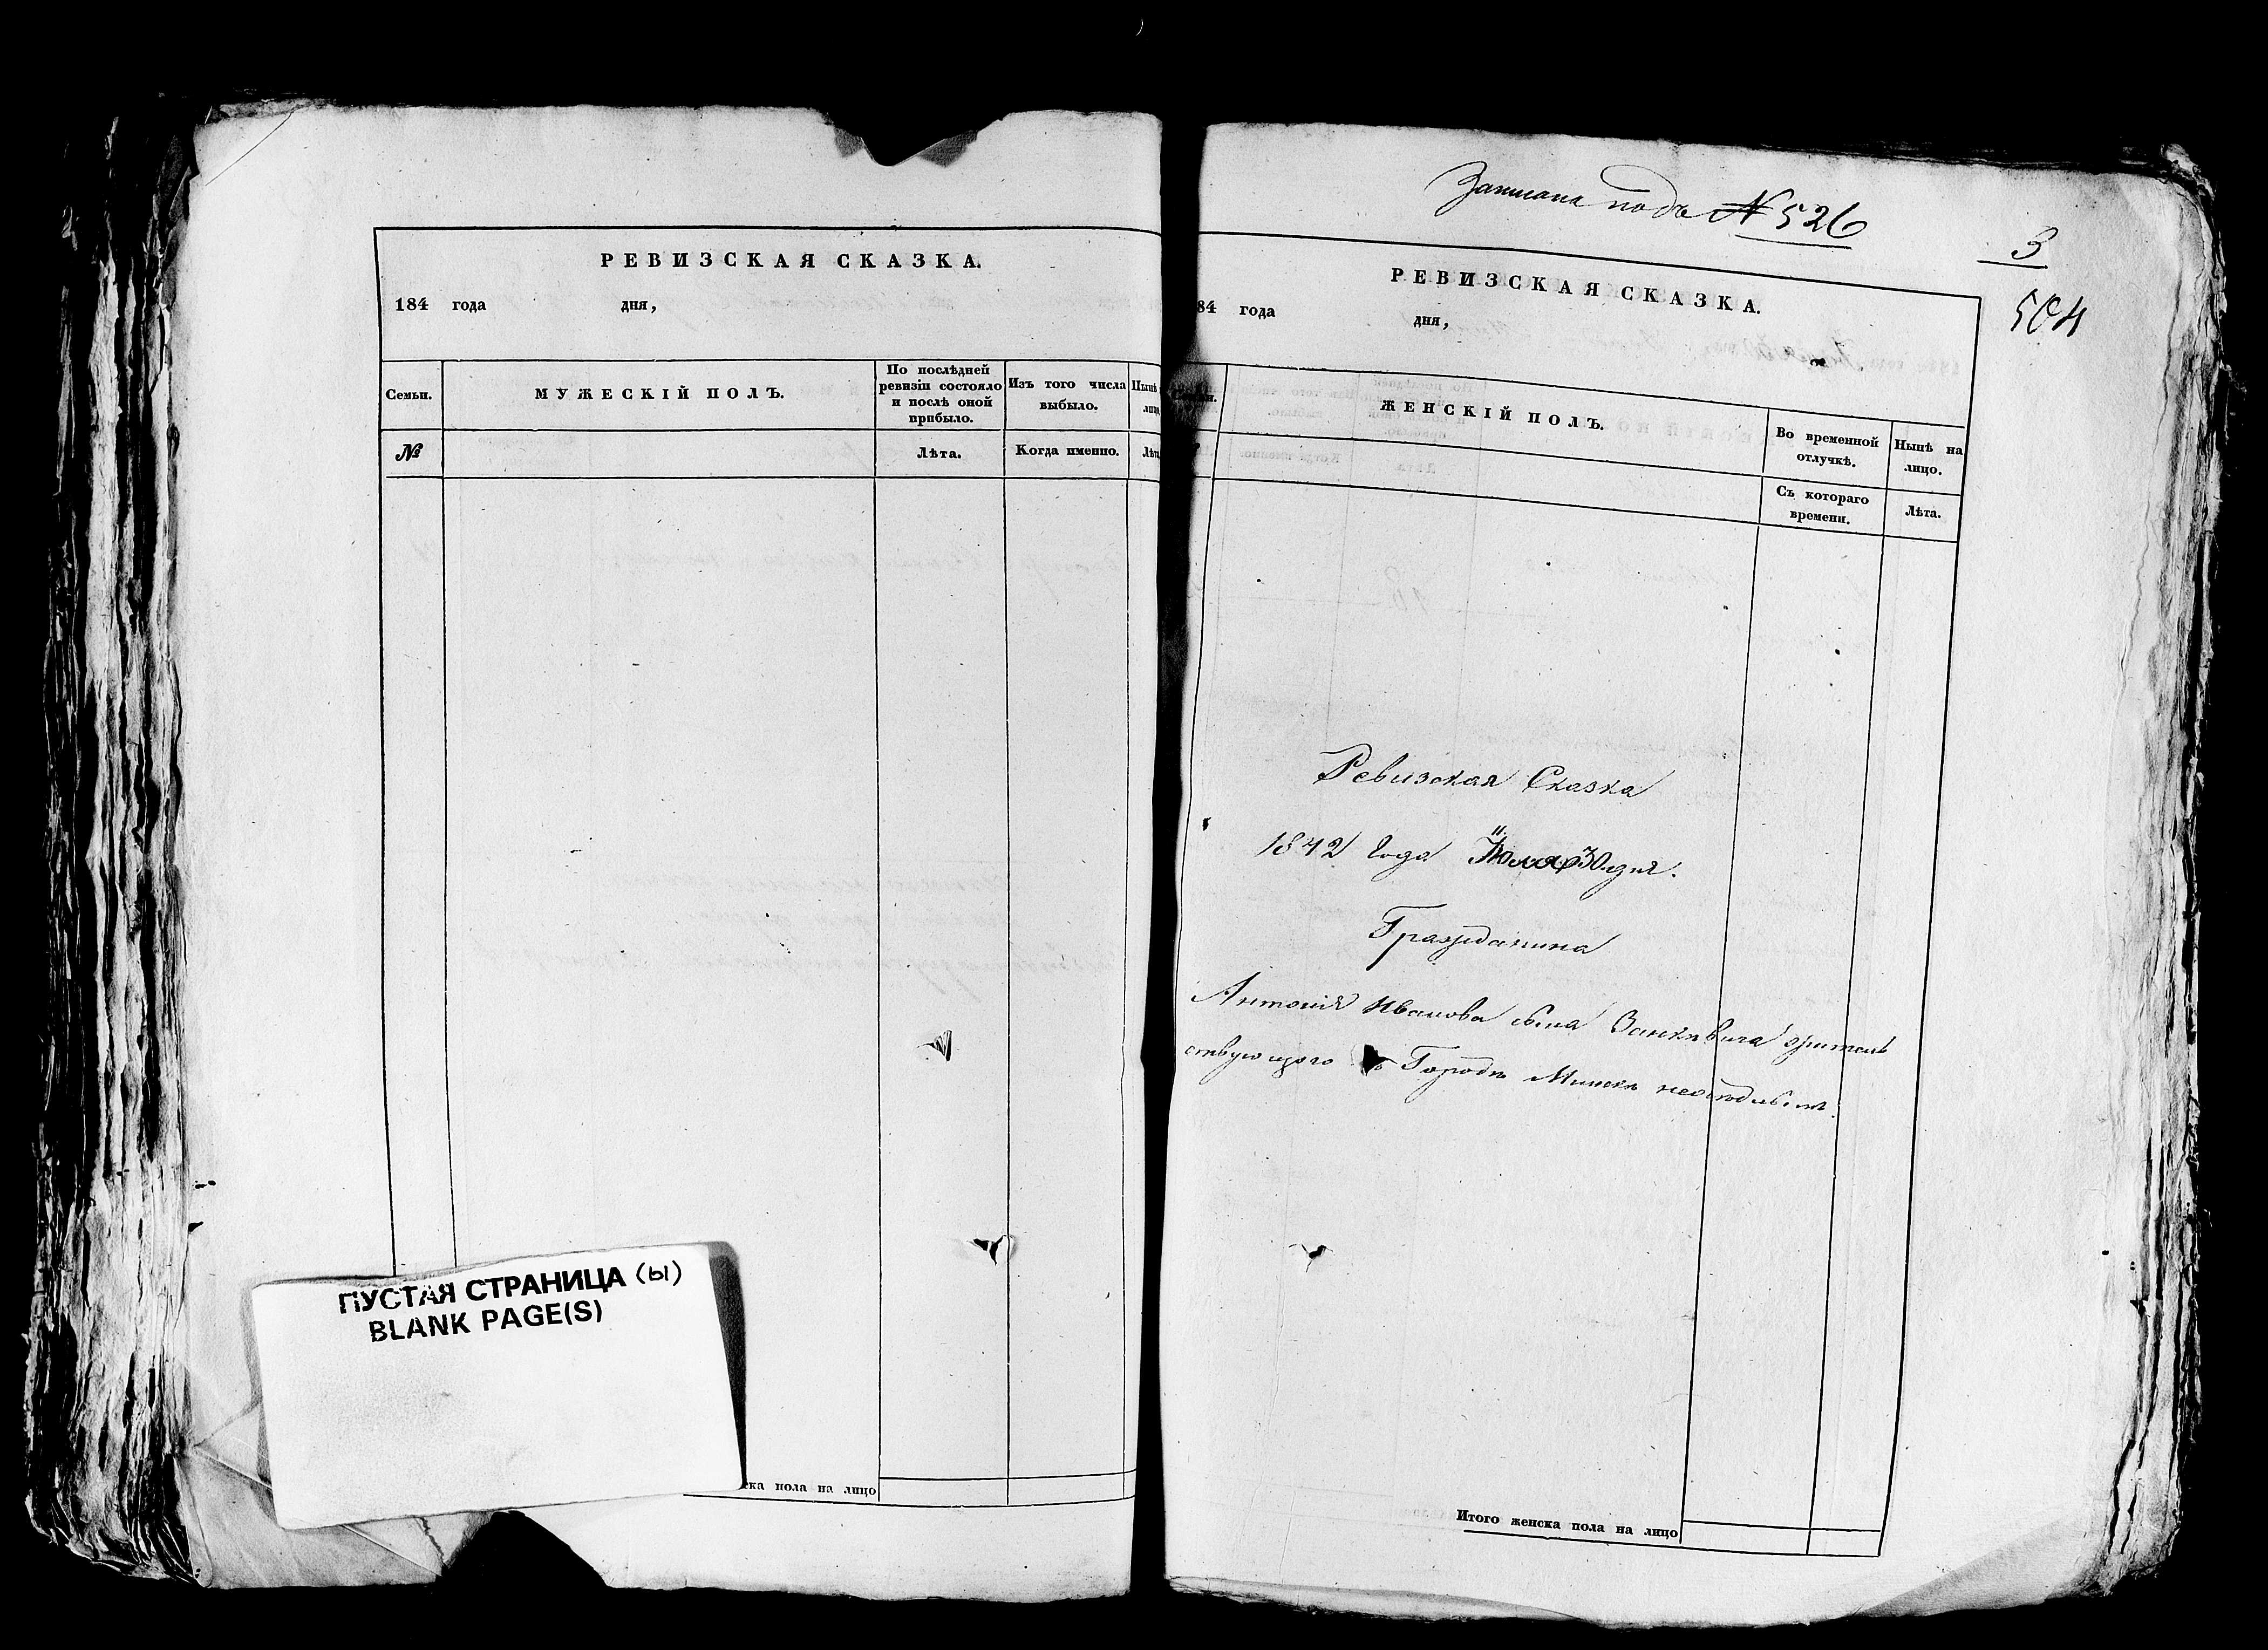 РЕВИЗСКАЯ СКАЗКА.
184 года дня,
Семьи.
МУЖЕСКІЙ ПОЛЪ.
По послѣдней ревизіи состояло и послѣ оной прибыло.
Изъ того числа выбыло.
Нынѣ
лицо
№
Лѣта.
Когда именно.
Лѣта
ПУСТАЯ СТРАНИЦА (ы)
BLANK PAGE(S)
ска пола на лицо
Записана подъ № 526
3
504
РЕВИЗСКАЯ СКАЗКА.
84 года дня,
ЖЕНСКІЙ ПОЛЪ.
Во временной отлучкѣ.
Нынѣ на лицо.
Съ котораго времени.
Лѣта.
Ревизская Сказка
1842 года Іюля 30 дня.
Гражданина
Антонія Иванова сына Занкѣвича жители
ствующаго въ Городѣ Минскѣ
Итого женска пола на лицо